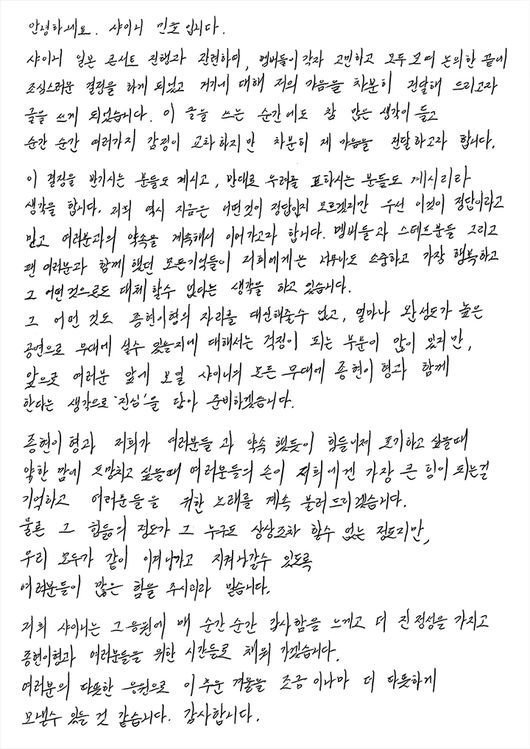 안녕하세요. 샤이니 민호입니다.
샤이니 일본 콘서트 진행과 관련하여, 멤버들이 각자 고민하고 모두 모여 논의한 끝에
조심스러운 결정을 하게 되었고 거기에 대해 저의 마음을 차분히 전달해 드리고자
글을 쓰게 되었습니다. 이 글을 쓰는 순간에도 참 많은 생각이 들고
순간 순간 여러가지 감정이 교차하지만 차분히 제 마음을 전달하고자 합니다.
이 결정을 반기시는 분들도 계시고, 반대로 우려를 표하시는 분들도 계시리라
생각을 합니다. 저희 역시 지금은 어떤것이 정답인지 모르겠지만 우선 이것이 정답이라고
믿고 여러분과의 약속을 계속해서 이어가고자 합니다. 멤버들과 스태프분들 그리고
팬 여러분과 함께 했던 모든기억들이 저희에게는 너무나도 소중하고 가장 행복하고
그 어떤 것으로도 대체 할수 없다는 생각을 하고 있습니다.
그 어떤 것도 종현이형의 자리를 대신해줄수 없고, 얼마나 완성도가 높은
공연으로 무대에 설수 있을지에 대해서는 걱정이 되는 부분이 많이 있지만,
앞으로 여러분 앞에 보일 샤이니의 모든 무대에 종현이형과 함께
한다는 생각으로 '진심'을 담아 준비하겠습니다.
종현이 형과 저희가 여러분들과 약속 했듯이 힘들어서 포기하고 싶을때
약한 맘에 도망치고 싶을때 여러분들의 손이 저희에겐 가장 큰 힘이 되는걸
기억하고 여러분들을 위한 노래를 계속 불러드리겠습니다.
물론 그 힘듦의 정도가 그 누구도 상상조차 할수 없는 정도지만,
우리 모두가 같이 이겨나가고 지켜나갈수 있도록
여러분들이 많은 힘을 주시리라 믿습니다.
저희 샤이니는 그 응원에 매 순간 순간 감사함을 느끼고 더 진정성을 가지고
종현이형과 여러분들을 위한 시간들로 채워 가겠습니다.
여러분의 따뜻한 응원으로 이 추운 겨울을 조금이나마 더 따뜻하게
보낼수 있을 것 같습니다. 감사합니다.